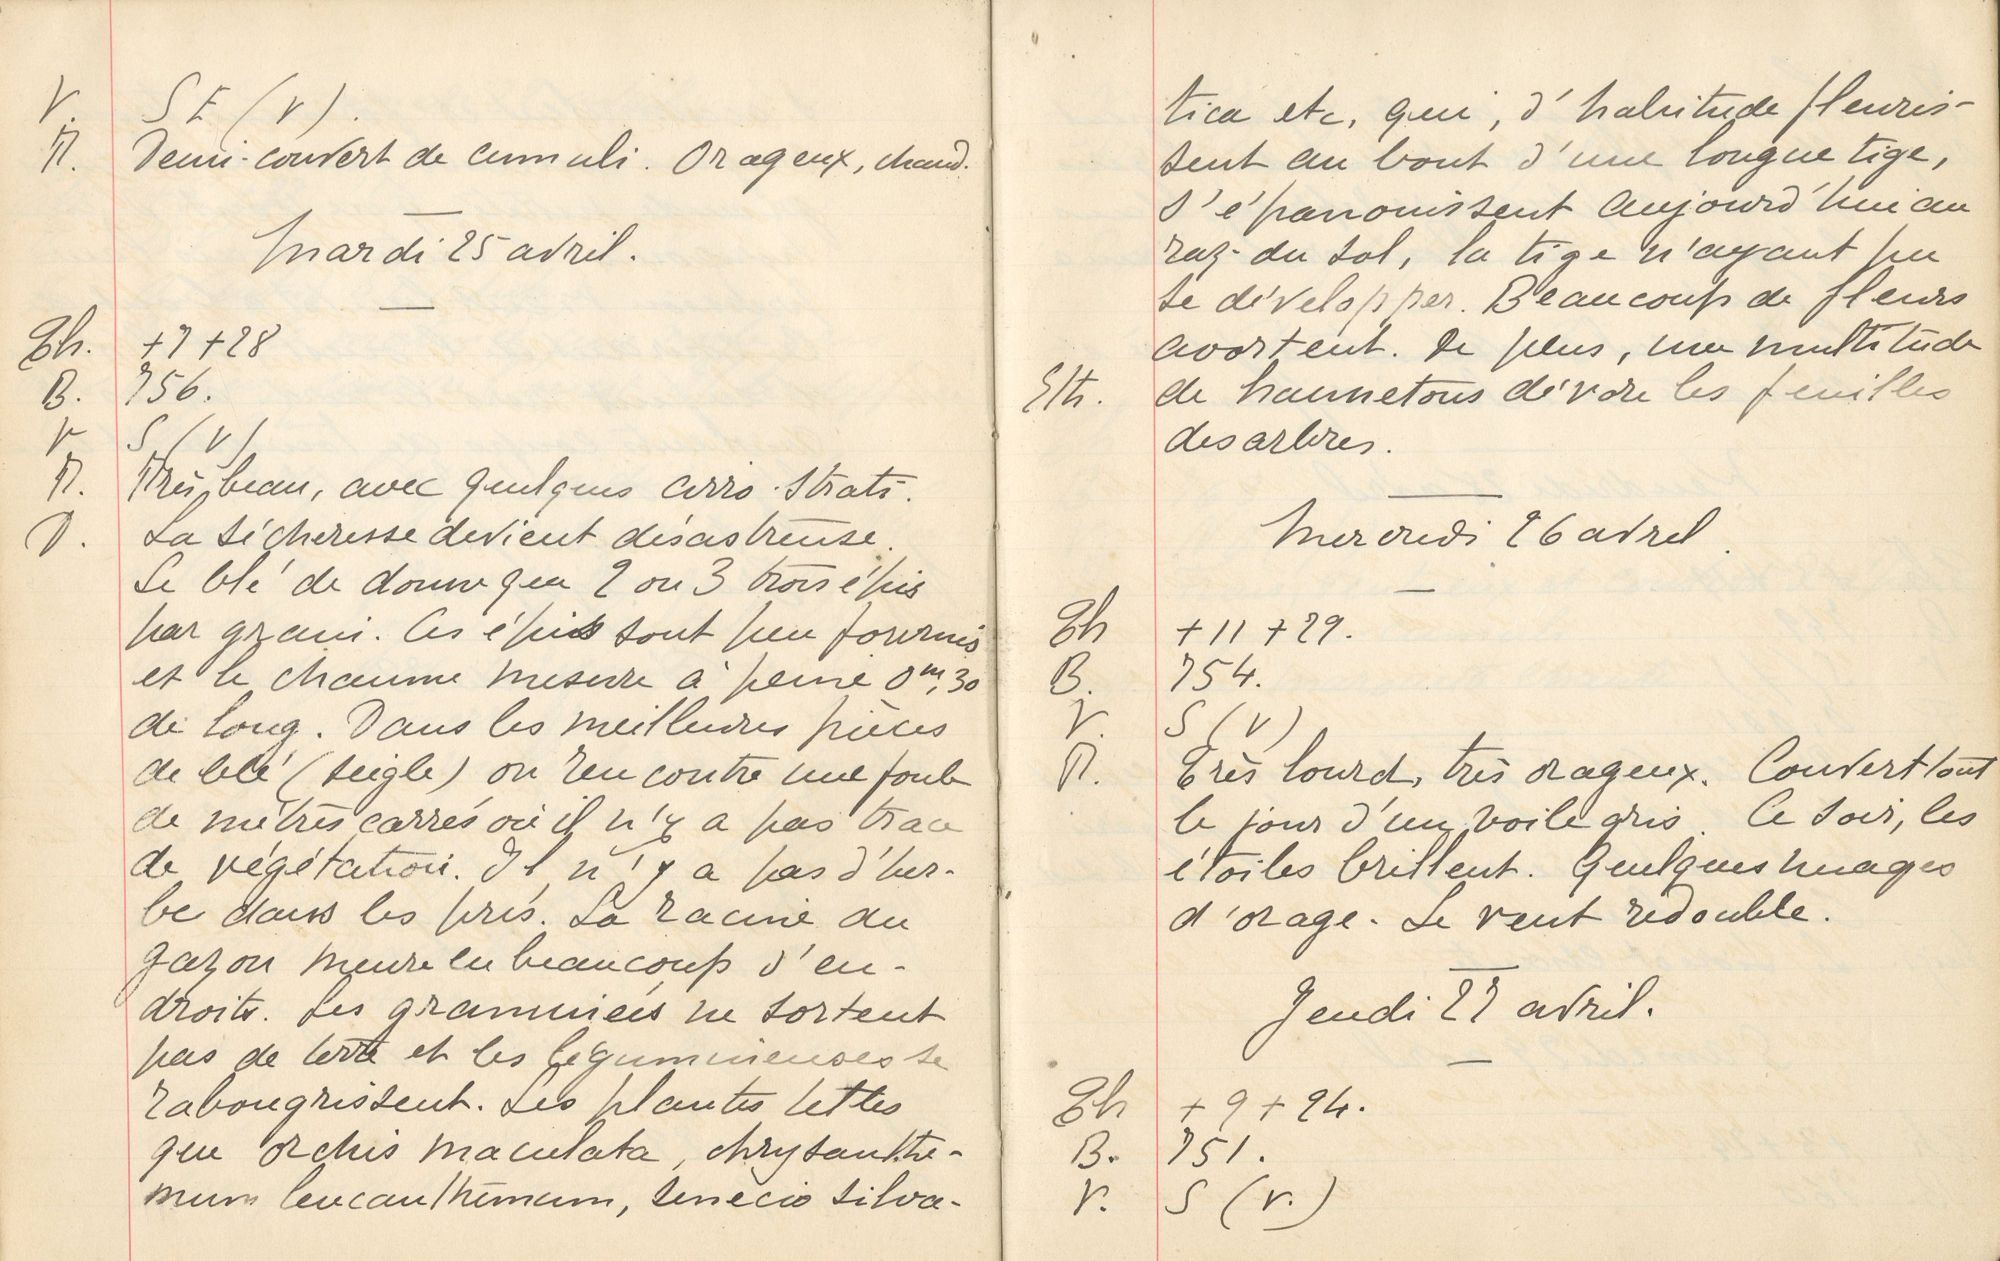 V. S E (v).
T. Demi-couvert de cumuli. Orageux, chaud.
Mardi 25 avril.
Th. +7 +28
B. 756.
V S (v)
T. Très beau, avec quelques cirro-strati.
D. La sécheresse devient désastreuse.
Le blé de donne que 2 ou 3 trois épis
par grain. Ces épis sont peu fournis
et le chaume mesure à peine 0m,30
de long. Dans les meilleures pièces
de blé (seigle) on rencontre une foule
de mètres carrés où il n'y a pas trace
de végétation. Il n'y a pas d'her-
be dans les prés. La racine du
gazon meure en beaucoup d'en-
droits. Les graminées ne sortent
pas de terre et les légumineuses se
rabougrissent. Les plantes telles
que orchis maculata, chrysanthe-
mum leucanthemum, senecio silva-
tica etc, qui, d'habitude fleuris-
sent au bout d'une longue tige,
s'épanouissent aujourd'hui au
raz-du sol, la tige n'ayant pu
se développer. Beaucoup de fleurs
avortent. De plus, une multitude
Eth. de hannetons dévore les feuilles
des arbres.
Mercredi 26 avril.
Th +11 +29.
B. 754.
V. S (v)
T. Très lourd, très orageux. Couvert tout
le jour d'un voile gris. Ce soir, les
étoiles brillent. Quelques nuages
d'orage. Le vent redouble.
Jeudi 27 avril.
Th +9 +24.
B. 751.
V. S (v.)